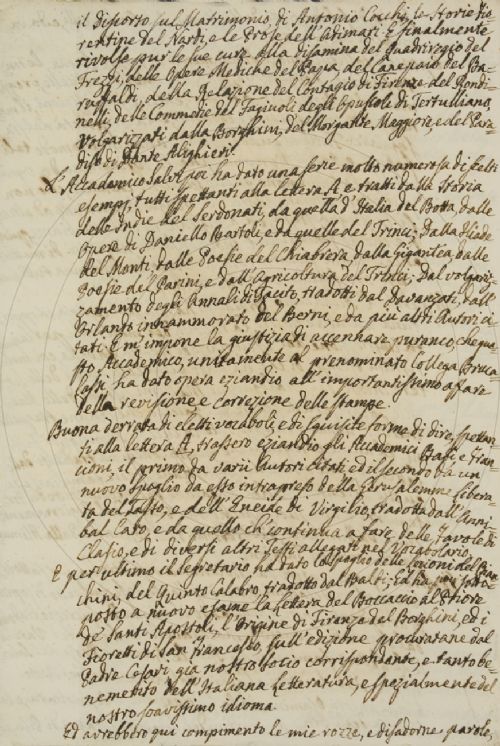 il discorso sul Matrimonio, di Antonio Cocchi, le Storie Fio-
rentine del Nardi, e le Prose dell'Adimari. E finalmente
rivolse pur le sue cure alla disamina del Quadriregio del
Frezzi, delle Opere Mediche del Papa, del Carcaio del Ba-
ruffaldi, della Relazione del Contagio di Firenze del Rondi-
nelli, delle Commedie del Fagiuoli degli Opuscoli di Tertulliano
volgarizzati dalla Borghini, del Morgante Maggiore, e del Para-
diso di Dante Alighieri.
L'Accademico Salvi poi ha dato una serie molto numerosa di scelti
esempi, tutti spettanti alla lettera A e tratti dalla Storia
delle Indie del Serdonati, da quella d'Italia del Botta, dalle
Opere di Daniello Bartoli, e da quelle del Trinci; dalla Iliade
del Monti, dalle Poesie del Chiabrera dalla Gigantea, dalle
Poesie del Parini, e dall'Agricoltura del Trinci; dal volgariz-
zamento degli Annali di Tacito, tradotti dal Davanzati, dall'
Orlando innammorato del Berni, e da più altri Autori ci-
tati. E mi impone la giustizia di accennare puranco, che que-
sto Accademico, unitamente al prenominato Collega Bruca-
lassi, ha dato opera eziandio all'importantissimo affare
della revisione e correzione delle stampe.
Buona derrata di eletti vocaboli, e di squisite forme di dire spettan-
ti alla lettera A, trassero eziandio gli Accademici Brasi e Fran-
cioni, il primo da varii Autori citati ed il secondo da un
nuovo spoglio da esso intrapreso della Gerusalemme Libera-
ta del Tasso, e dell'Eneide di Virgilio, tradotta dall'Anni-
bal Caro, e da quello ch'ei continua a fare delle Favole di
Clasio, e di diversi altri Testi allegati nel Vocabolario.
E per ultimo il Segretario ha dato lo spoglio delle Lezioni del Bian-
chini, del Quinto Calabro, tradotto dal Baldi; ed ha poi sotto-
posto a nuovo esame la Lettera del Boccaccio al Priore
de' Santi Apostoli, l'Origine di Firenze del Borghini, ed i
Fioretti di San Francesco, sull'edizione procuratane dal
Padre Cesari già nostro socio corrispondente, e tanto be-
nemerito dell'Italiana Letteratura, e spezialmente del
nostro soavissimo idioma.
Ed avrebbero qui compimento le mie rozze, e disadorne parole,